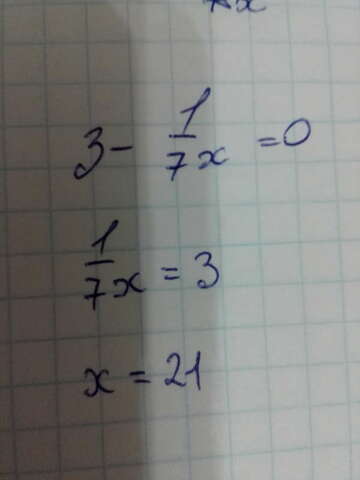 3 - 1/7 x = 0
1/7 x = 3
x = 21